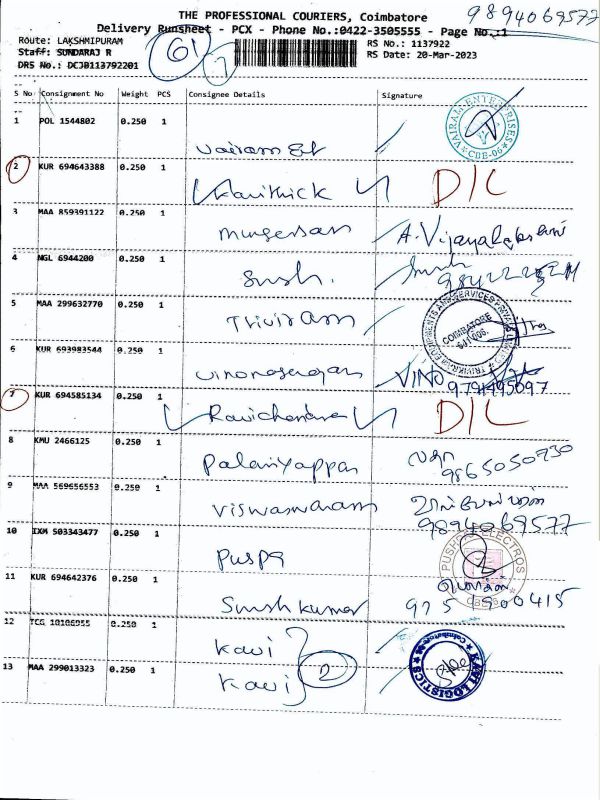 9894069577
THE PROFESSIONAL COURIERS, Coimbatore
Delivery Runsheet - PCX - Phone No.:0422-3505555 - Page No.:1
Route: LAKSHMIPURAM RS No.: 1137922
Staff: SUNDARAJ R RS Date: 20-Mar-2023
DRS No.: DCJB113792201
S No Consignment No Weight PCS Consignee Details Signature
1 POL 1544802 0.250 1
VAIRAM ENTERPRISES CBE-06
2 KUR 694643388 0.250 1
D/L
3 MAA 859391122 0.250 1
Murgessan A. Vijayalakshmi
4 NGL 6944200 0.250 1
5 MAA 299632770 0.250 1
Trivi Ram
COIMBATORE
6 KUR 693983544 0.250 1
VINO
7 KUR 694585134 0.250 1
Ravichandra D/L
8 KMU 2466125 0.250 1
Palaniyappan
9865050730
9 MAA 569656553 0.250 1
Viswaswaram
9894069577
10 IXM 503343477 0.250 1
Puspa
PUSHPA ELECTROS
11 KUR 694642376 0.250 1
Suresh kumar
12 TCG 10106955 0.250 1
Kavi
2
13 MAA 299013323 0.250 1
Kavi
KAVI LOGISTICS